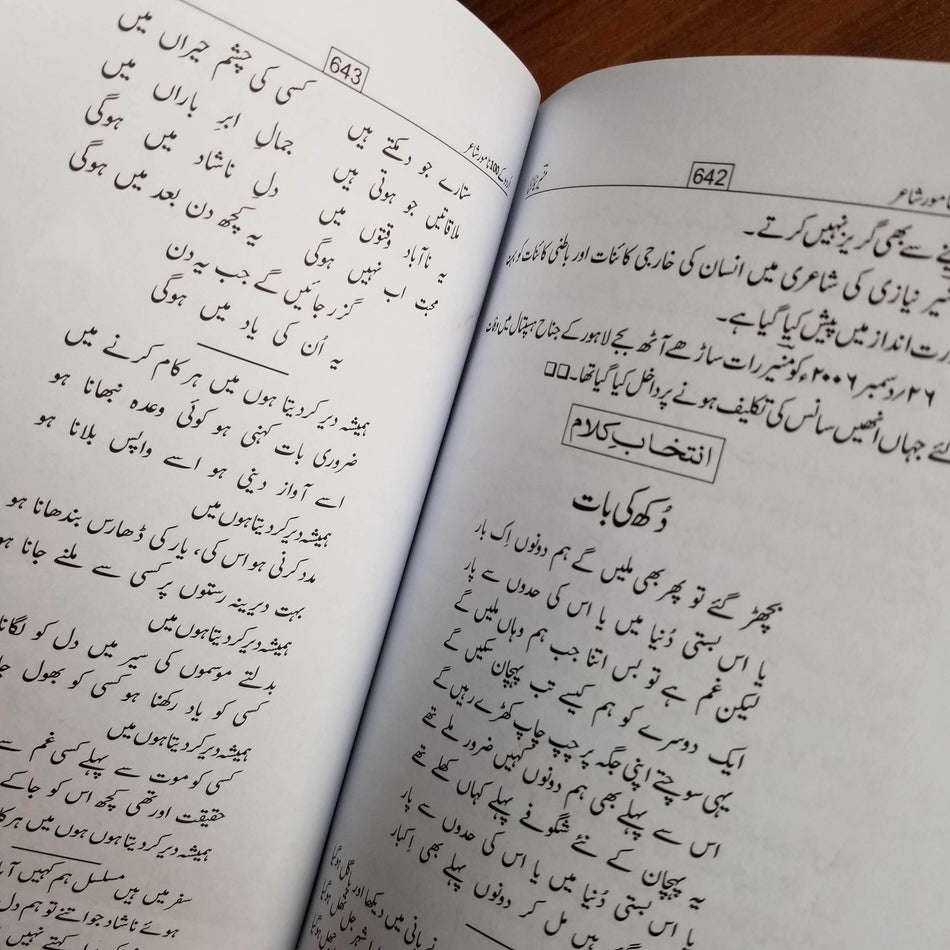 642
نامور شاعر
نے سے بھی گریز نہیں کرتے۔
نیازی کی شاعری میں انسان کی خارجی کائنات اور باطنی کائنات کو
انداز میں پیش کیا گیا ہے۔
۲۶؍دسمبر ۲۰۰۶ء کو منیر رات ساڑھے آٹھ بجے لاہور کے جناح ہسپتال میں
جہاں انھیں سانس کی تکلیف ہونے پر داخل کیا گیا تھا۔□□
انتخابِ کلام
دُکھ کی بات
بچھڑ گئے تو پھر بھی ملیں گے ہم دونوں اِک بار
یا اس بستی دُنیا میں یا اس کی حدوں سے پار
لیکن غم ہے تو بس اتنا جب ہم وہاں ملیں گے
ایک دوسرے کو ہم کیسے تب پہچان سکیں گے
یہی سوچتے اپنی جگہ پر چپ چاپ کھڑے رہیں گے
اس سے پہلے بھی ہم دونوں کہیں ضرور ملے تھے
یہ پہچان کے نئے شگوفے پہلے کہاں کھلے تھے
یا اس بستی دُنیا میں یا اس کی حدوں سے پار
مل کر دونوں پہلے بھی اِکبار
نے پانی میں دیکھا اور
643
اردو کے 100 نامور شاعر
ستارے جو دمکتے ہیں کسی کی چشم حیراں میں
ملاقاتیں جو ہوتی ہیں جمالِ ابرِ باراں میں
یہ ناآباد وقتوں میں دلِ ناشاد میں ہوگی
محبت اب نہیں ہوگی یہ کچھ دن بعد میں ہوگی
گزر جائیں گے جب یہ دن
یہ اُن کی یاد میں ہوگی
ہمیشہ دیر کردیتا ہوں میں ہر کام کرنے میں
ضروری بات کہنی ہو کوئی وعدہ نبھانا ہو
اسے آواز دینی ہو اسے واپس بلانا ہو
ہمیشہ دیر کردیتا ہوں میں
مدد کرنی ہو اس کی، یار کی ڈھارس بندھانا ہو
بہت دیرینہ رستوں پر کسی سے ملنے جانا ہو
ہمیشہ دیر کردیتا ہوں میں
بدلتے موسموں کی سیر میں دل کو لگانا
کسی کو یاد رکھنا ہو کسی کو بھول
ہمیشہ دیر کردیتا ہوں میں
کسی کو موت سے پہلے کسی غم سے
حقیقت اور تھی کچھ اس کو جاکے
ہمیشہ دیر کردیتا ہوں ہوں میں ہر
سفر میں ہیں مسلسل ہم کہیں
ہوئے ناشاد جو اتنے تو ہم دل
کہتے نہیں